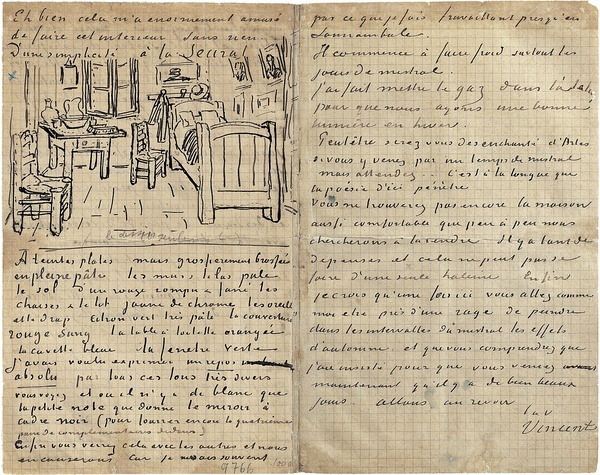 Eh bien cela m'a enormement amusé
de faire cet interieur sans rien
D'une simplicité à la Seurat
A teintes plates mais grossierement brossées
en pleine pâte les murs lilas pale
le sol d'un rouge rompu & fané les
chaises & le lit jaune de chrome les oreillers
et le drap citron vert très pâle la couverture
rouge sang la table à toilette orangée
la cuvette bleue la fenetre verte
J'avais voulu exprimer un repos
absolu par tous ces tons très divers
vous voyez et où il n'y a de blanc que
la petite note que donne le miroir à
cadre noir (pour fourrer encore la quatrieme
paire de complementaires dedans)
Enfin vous verrez cela avec les autres et nous
en causerons car je ne sais souvent
9766
pas ce que je fais travaillant presqu'en
somnambule.
Il commence à faire froid surtout les
jours de mistral.
j'ai fait mettre le gaz dans
pour que nous ayons une bonne
lumière en hiver.
Peutêtre serez vous desenchanté d'Arles
si vous y venez par un temps de mistral
mais attendez... C'est à la longue que
la poésie d'ici pénètre
Vous ne trouverez pas encore la maison
aussi comfortable que peu à peu nous
chercherons à la rendre Il y a tant de
depenses et cela ne peut pas se
faire d'une seule haleine Enfin
je crois qu'une fois ici vous allez comme
moi etre pris d'une rage de peindre
dans les intervalles du mistral les effets
d'automne et que vous comprendrez que
j'ai insisté pour que vous veniez
maintenant qu'il y a de bien beaux
jours allons au revoir
t. à v.
Vincent